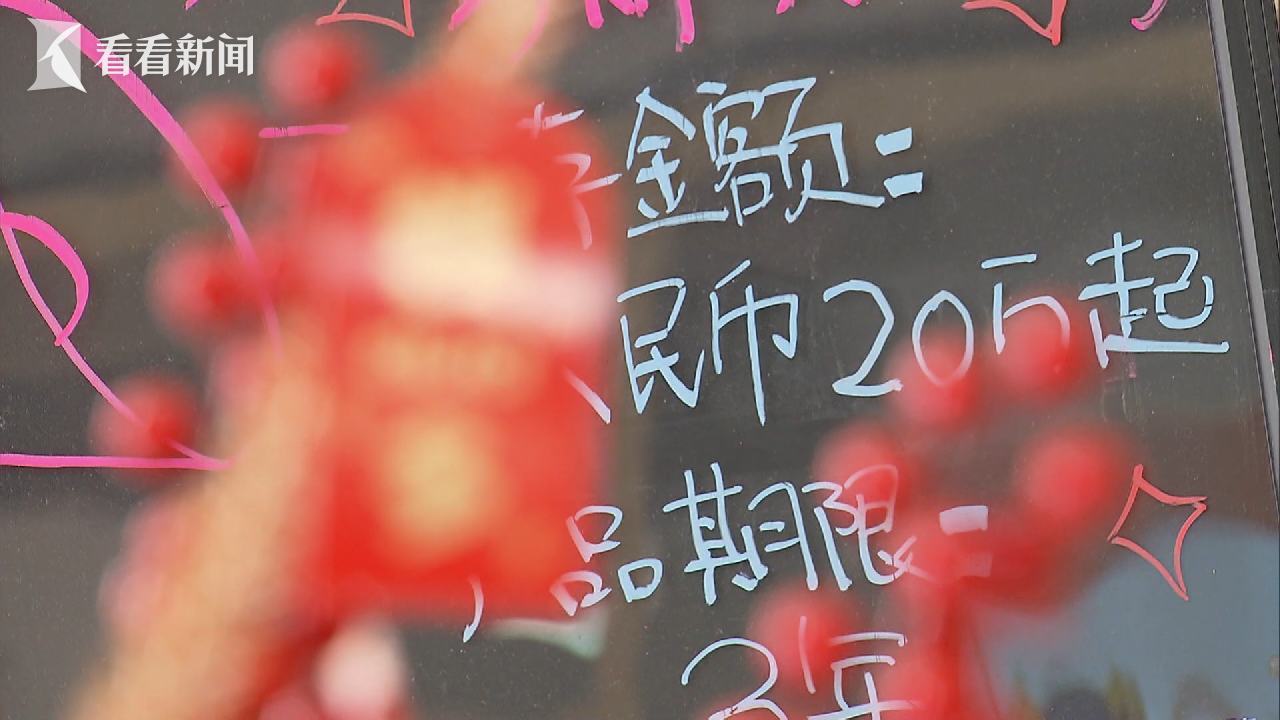 看看新闻
存金额:
民币20万起
品期限:
3年